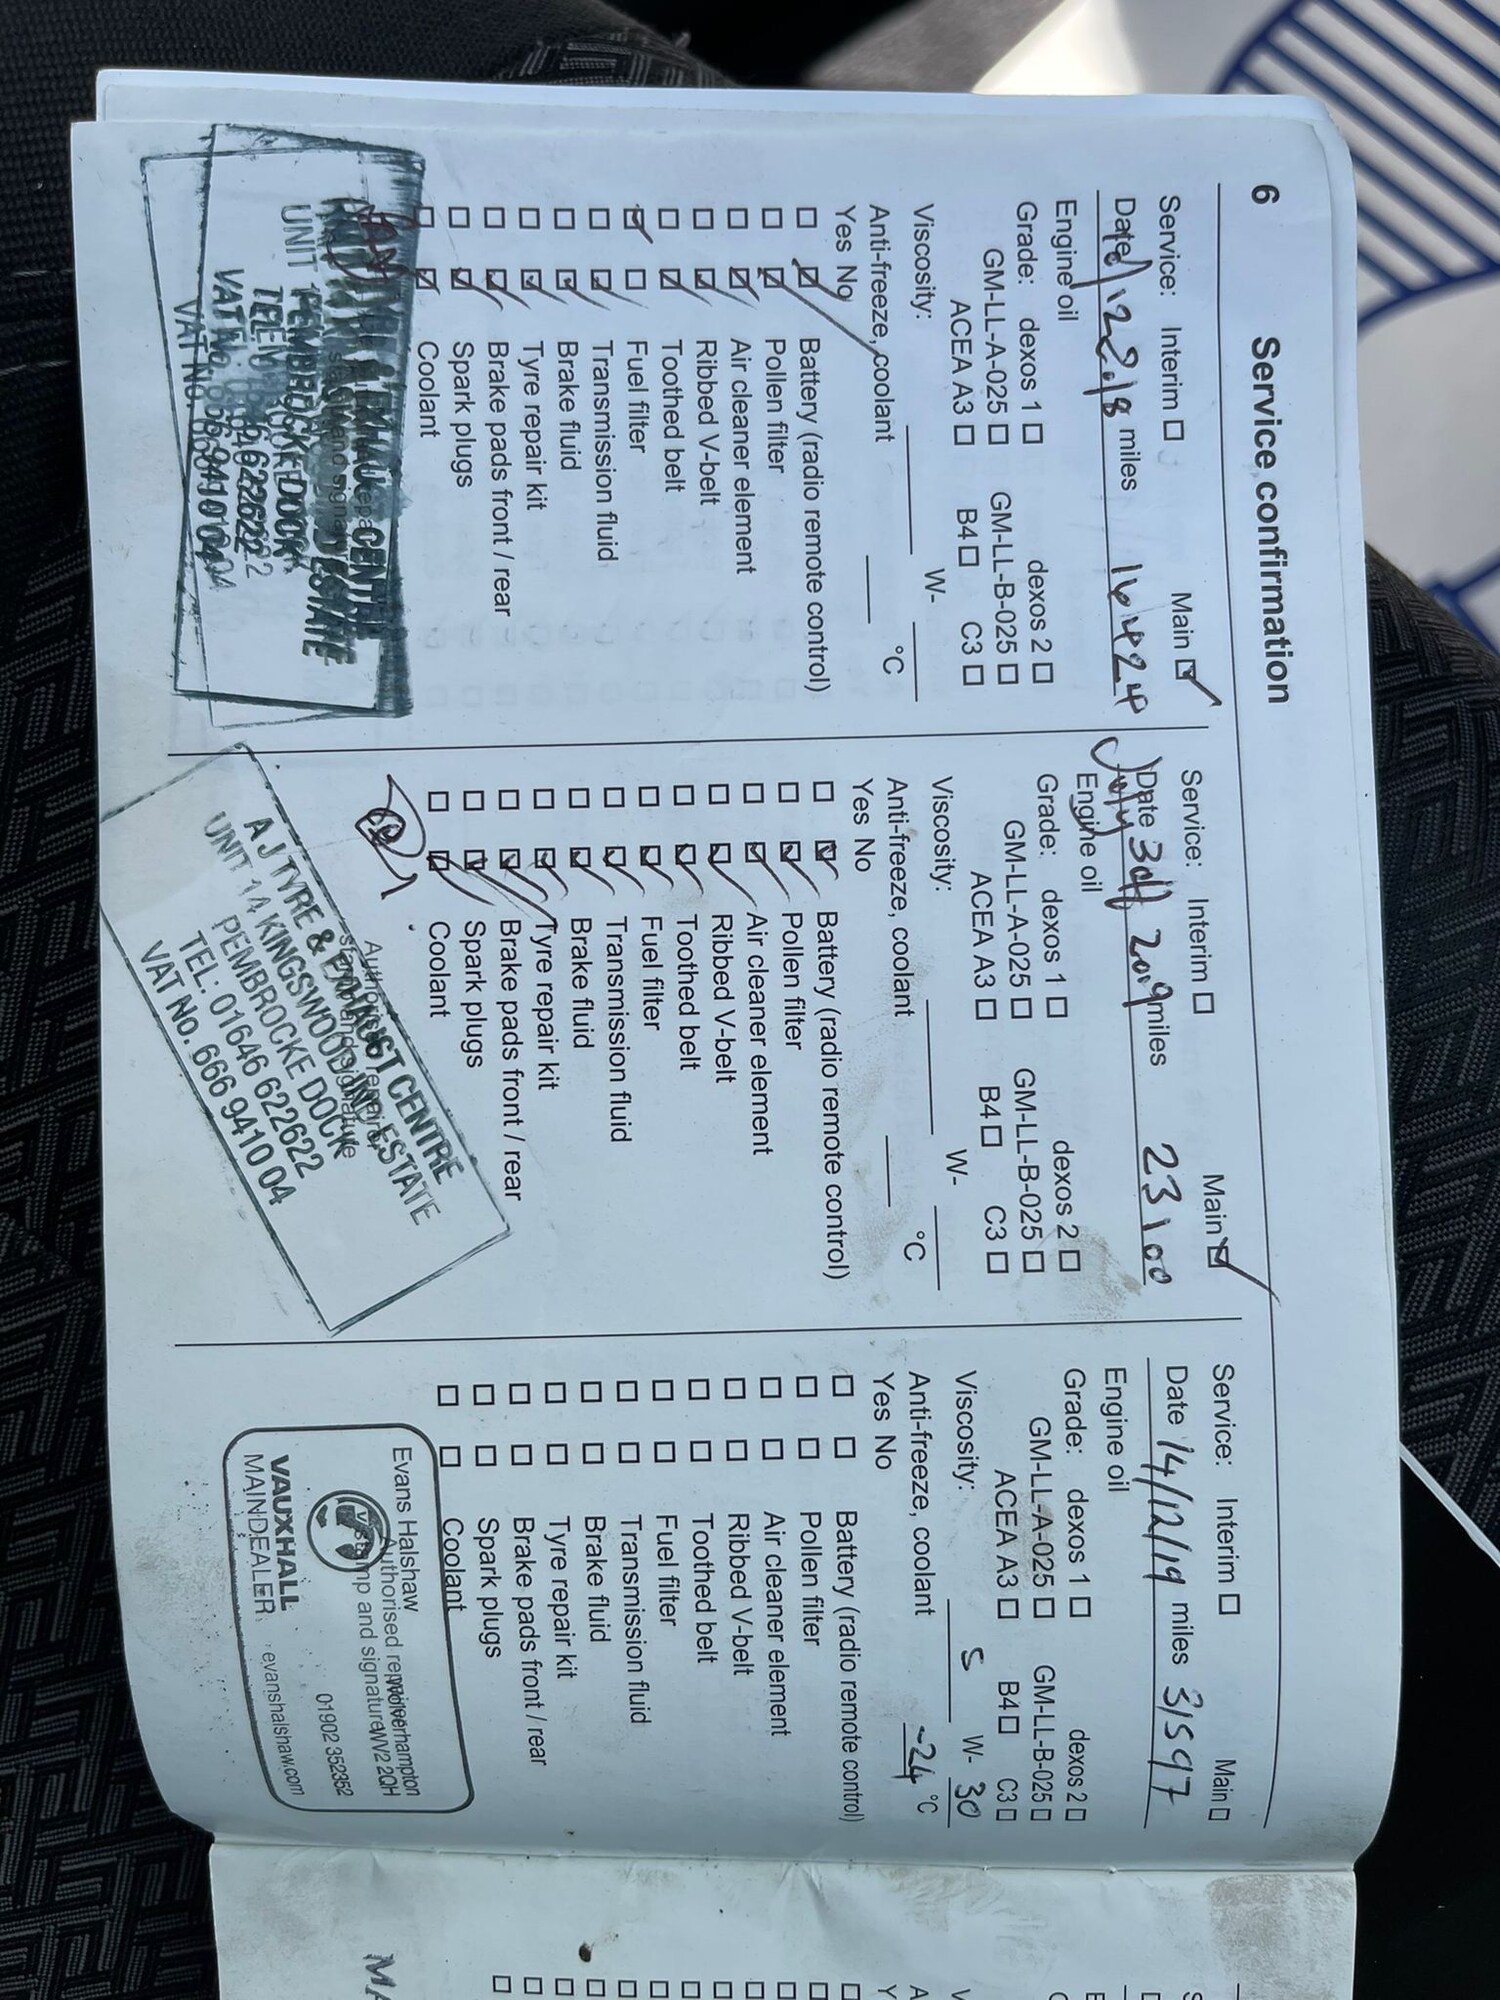 6 Service confirmation
Service: Interim □ Main ☑
Date miles 16424
Engine oil
Grade: dexos 1 □ dexos 2 □
GM-LL-A-025 □ GM-LL-B-025 □
ACEA A3 □ B4 □ C3 □
Viscosity: W-
Anti-freeze, coolant °C
Yes No
□ ☑ Battery (radio remote control)
□ ☑ Pollen filter
□ ☑ Air cleaner element
□ ☑ Ribbed V-belt
□ ☑ Toothed belt
☑ □ Fuel filter
□ ☑ Transmission fluid
□ ☑ Brake fluid
□ ☑ Tyre repair kit
□ ☑ Brake pads front / rear
□ ☑ Spark plugs
□ ☑ Coolant
PEMBROCKE DOCK
Service: Interim □ Main ☑
Date July 3rd 2019 miles 23100
Engine oil
Grade: dexos 1 □ dexos 2 □
GM-LL-A-025 □ GM-LL-B-025 □
ACEA A3 □ B4 □ C3 □
Viscosity: W-
Anti-freeze, coolant °C
Yes No
□ ☑ Battery (radio remote control)
□ ☑ Pollen filter
□ ☑ Air cleaner element
□ ☑ Ribbed V-belt
□ ☑ Toothed belt
□ ☑ Fuel filter
□ ☑ Transmission fluid
□ ☑ Brake fluid
□ ☑ Tyre repair kit
□ ☑ Brake pads front / rear
□ ☑ Spark plugs
□ ☑ Coolant
Authorised repairer
stamp and signature
A J TYRE & EXHAUST CENTRE
UNIT 14 KINGSWOOD IND ESTATE
PEMBROCKE DOCK
TEL: 01646 622622
VAT NO. 666 9410 04
Service: Interim □ Main □
Date 14/12/19 miles 31597
Engine oil
Grade: dexos 1 □ dexos 2 □
GM-LL-A-025 □ GM-LL-B-025 □
ACEA A3 □ B4 □ C3 □
Viscosity: 5 W- 30
Anti-freeze, coolant -24 °C
Yes No
□ □ Battery (radio remote control)
□ □ Pollen filter
□ □ Air cleaner element
□ □ Ribbed V-belt
□ □ Toothed belt
□ □ Fuel filter
□ □ Transmission fluid
□ □ Brake fluid
□ □ Tyre repair kit
□ □ Brake pads front / rear
□ □ Spark plugs
□ □ Coolant
Authorised repairer
stamp and signature
Evans Halshaw
Wolverhampton
WV2 2QH
01902 352352
VAUXHALL
MAIN DEALER evanshalshaw.com